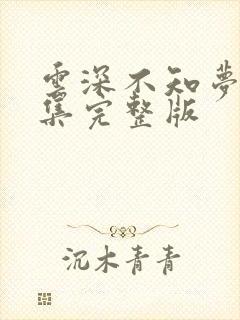 云深不知夢
集完整版
沉木青青